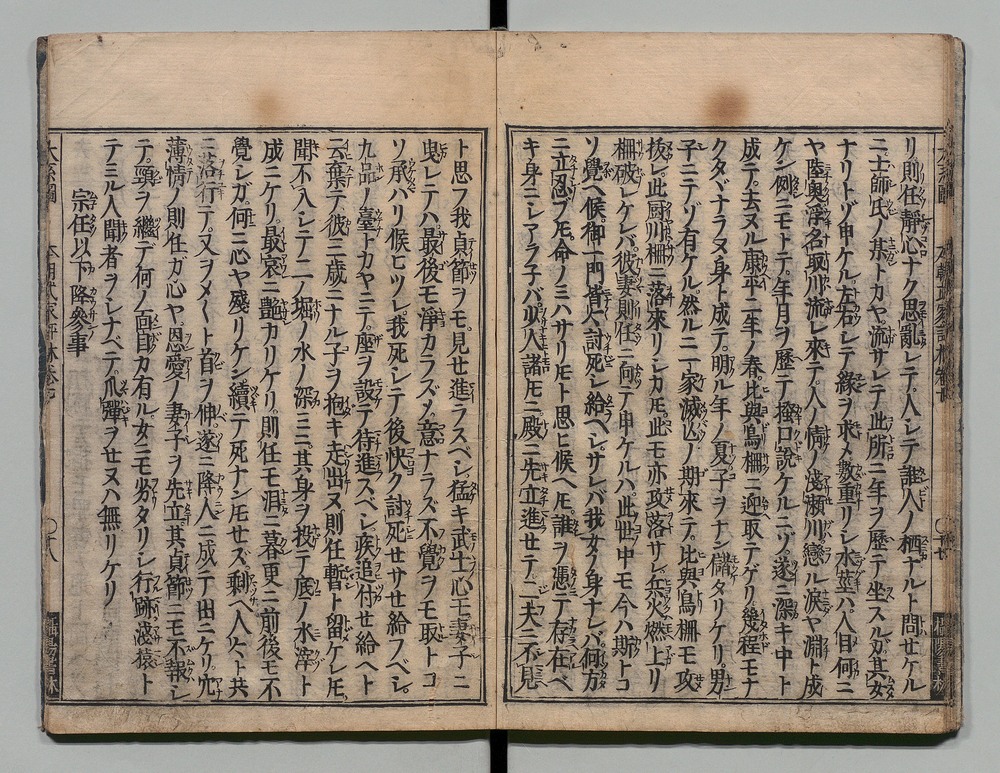 リ則任靜心ナク思亂レテ人シテ誰人ノ栖ナルト問セケル
ニ土師氏ノ某トカヤ流サレテ此所ニ年ヲ歴テ坐スルガ其女
ナリトゾ申ケル左右シテ緣ヲ求メ數重リシ水莖ハ入日何ニ
ヤ陸奥ノ名取川流レ來テ人ノ情ノ淺瀬川戀ル涙ヤ淵ト成
ケン例ニモトテ年月ヲ歷テ搔口說ケルニゾ遂ニ深キ中ト
成テ去ヌル康平二年ノ春比與鳥柵ニ迎取テゲリ幾程モナ
クタヾナラヌ身ト成テ明ル年ノ夏子ヲナン儲タリケリ男
子ニテゾ有ケル然ルニ一家滅亾ノ期來テ比與鳥柵モ攻
拔レ此厨川柵ニ落來リシカ𪜈此モ亦攻落サレ兵火燃上リ
柵破レケレバ彼妻則任ニ向テ申ケルハ此世中モ今ハ期トコ
ソ覺ヘ候御一門皆人討死シ給ヘシサレバ我女ノ身ナレバ何方
ニ立忍ブ𪜈命ノミハサリト𪜈思ヒ候ヘ𪜈誰ヲ憑テ存在ベ
キ身ニシアラ子バ少人諸𪜈ニ殿ニ先立進セテ二夫ニ不見
ト思フ我貞節ヲモ見セ進ラスベシ猛キ武士心モ妻子ニ
曳レテハ最後モ淨カラズノ意ナラズ不覺ヲモ取トコ
ソ承ハリ候ヒツレ我死シテ後快ク討死セサセ給フベシ
九品ノ臺トカヤニテ座ヲ設テ待進スベシ疾追付セ給ヘト
云棄テ彼三歲ニナル子ヲ抱キ走出ヌ則任暫ト留ケレ𪜈
聞不入シテ二ノ堀ノ水ノ深ミニ其身ヲ投テ底ノ水滓ト
成ニケリ最哀ニ艷カリケリ則任モ泪ニ暮更ニ前後モ不
覺シガ何ニ心ヤ殘リケン續テ死ナン𪜈セズ剩ヘ人久ト共
ニ落行テ又ヲメ〱ト首ヲ伸遂ニ降人ニ成テ出ニケリ
薄情ノ則任カ心ヤ恩愛ノ妻子ヲ先立其貞節ニモ不報シ
テ頸ヲ繼テ何ノ面目カ有ル女ニモ劣タリシ行跡淺猿ト
テミル人聞者ヲシナベテ爪彈ヲセヌハ無リケリ
宗任以下降參事